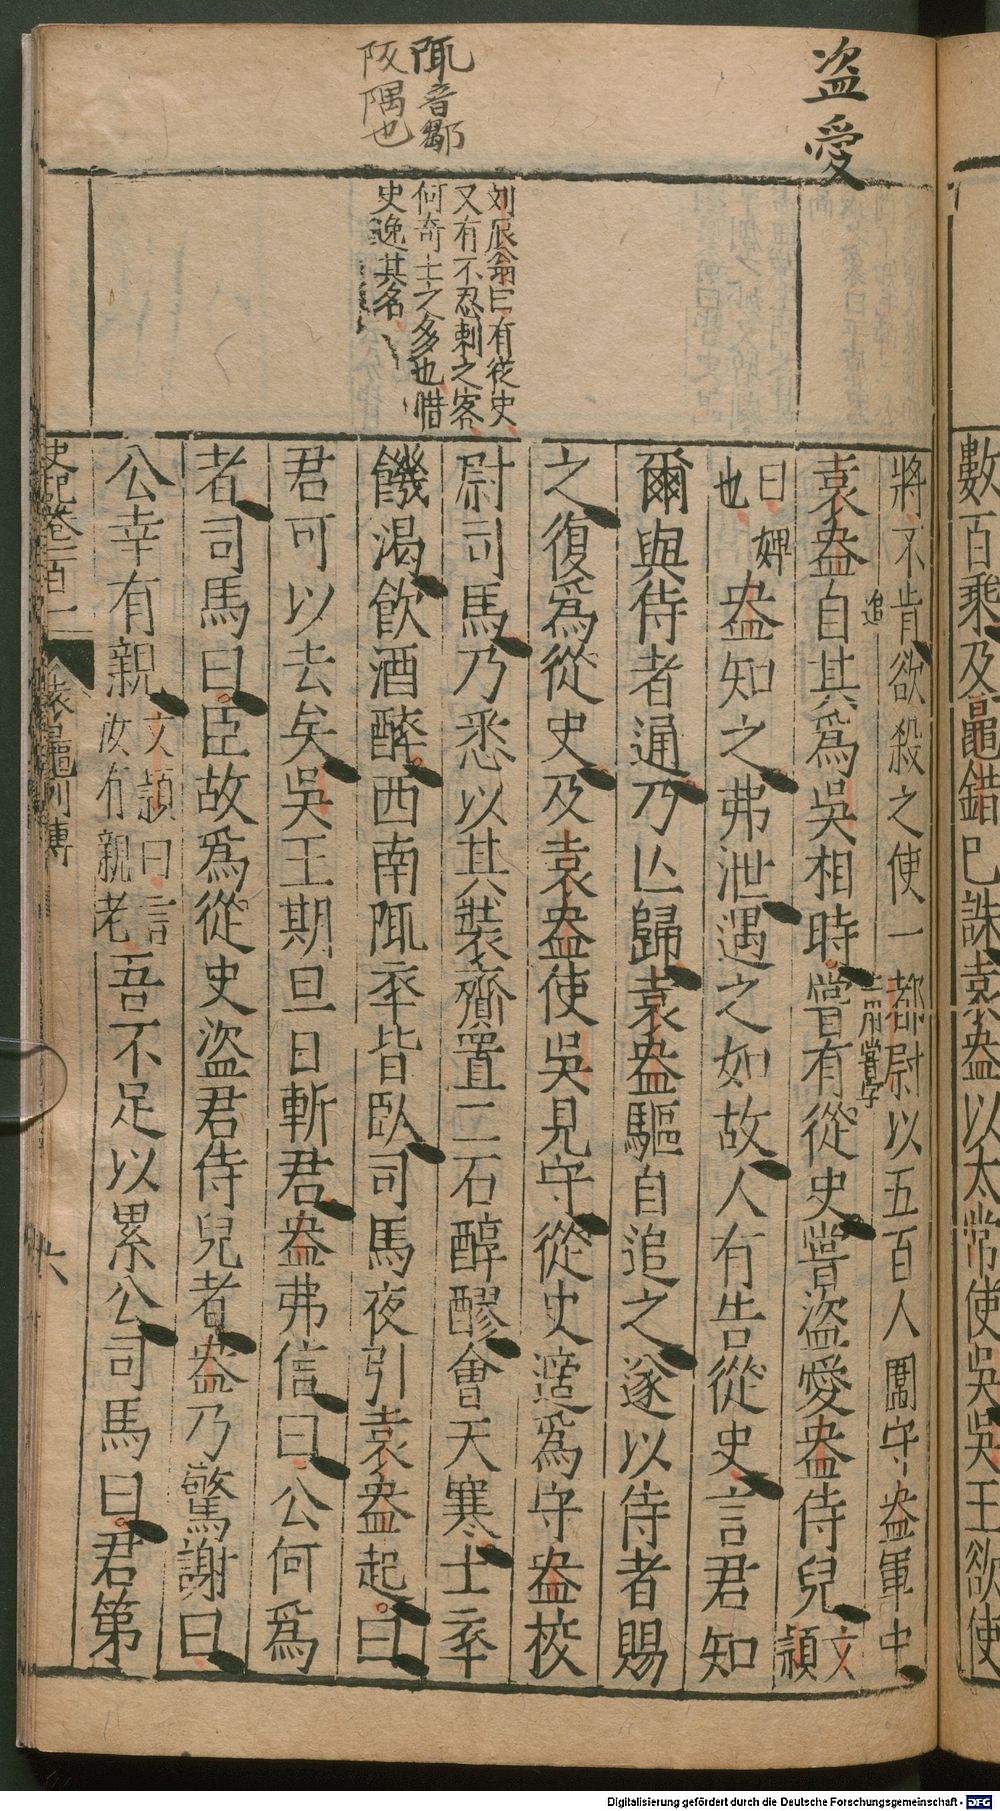 數百乘及鼂錯已誅袁盎以太常使吳吳王欲使
盜愛
陬音鄹
阪隅也
刘辰翁曰有從史
又有不忍刺之客
何奇士之多也惜
史逸其名
將不肯欲殺之使一都尉以五百人圍守盎軍中
追
一作嘗字
袁盎自其爲吳相時嘗有從史嘗盜愛盎侍兒文穎
曰婢也盎知之弗泄遇之如故人有告從史言君知
爾與侍者通乃亾歸袁盎驅自追之遂以侍者賜
之復爲從史及袁盎使吳見守從史適爲守盎校
尉司馬乃悉以其裝齎置二石醇醪會天寒士卒
饑渴飲酒醉西南陬卒皆臥司馬夜引袁盎起曰
君可以去矣吳王期旦日斬君盎弗信曰公何爲
者司馬曰臣故爲從史盜君侍兒者盎乃驚謝曰
公幸有親文穎曰言汝有親老吾不足以累公司馬曰君第
史記卷一百一 袁鼂列傳 六
Digitalisierung gefördert durch die Deutsche Forschungsgemeinschaft - DFG